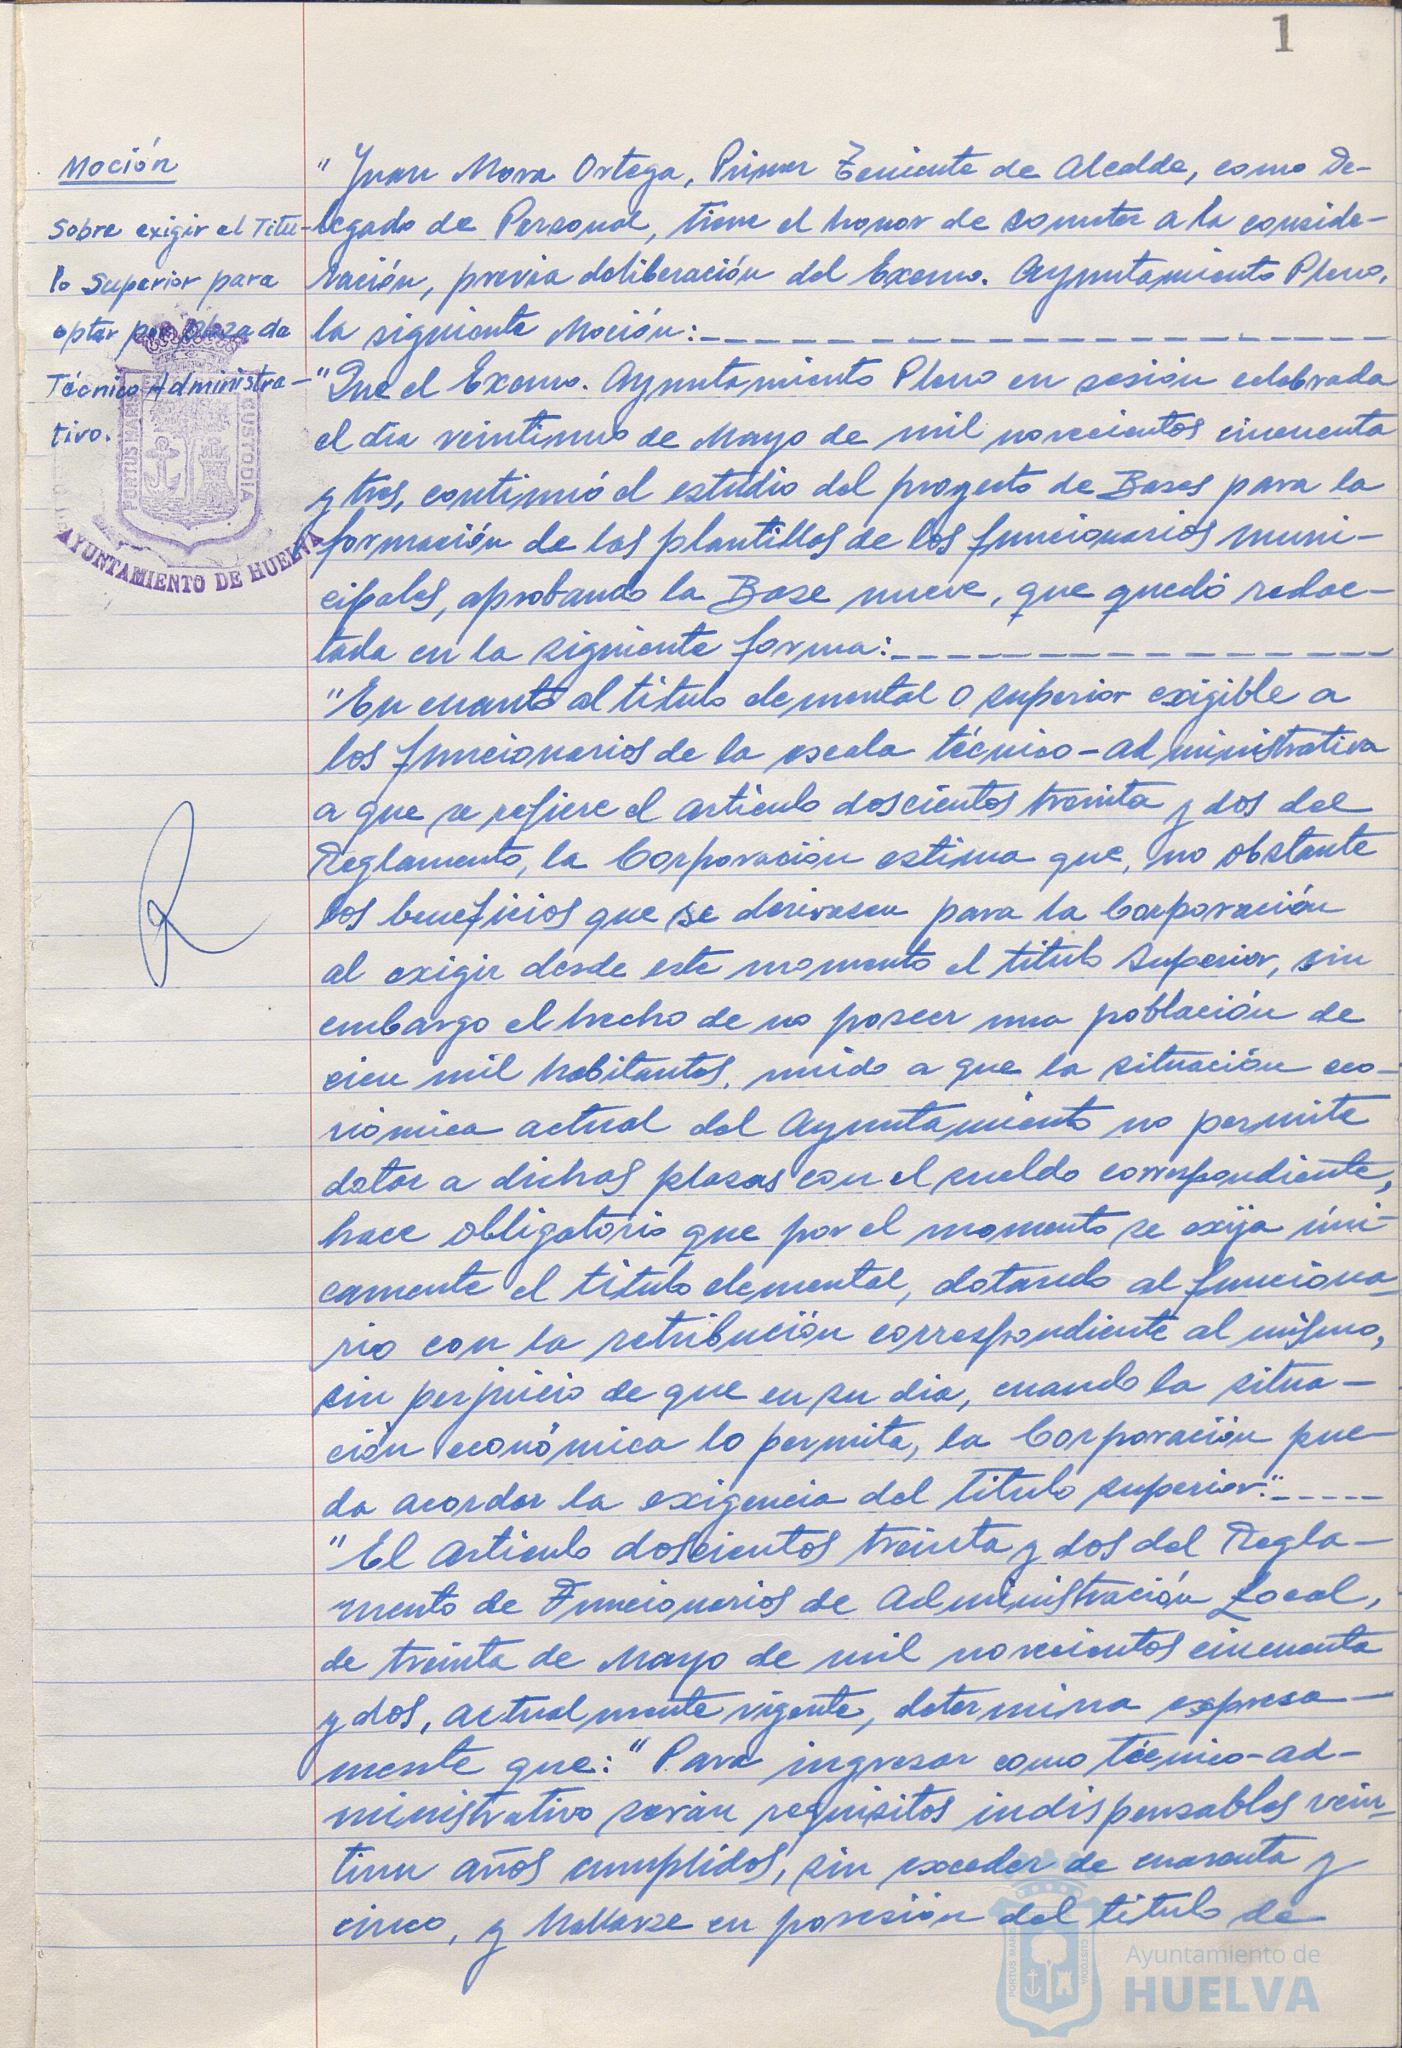 1
Moción
Sobre exigir el Titu-
lo Superior para
optar por plaza de
Técnico Administra-
tivo.
PORTUS MARIS
CUSTODIA
AYUNTAMIENTO DE HUELVA
" Juan Mora Ortega, Primer Teniente de Alcalde, como De-
legado de Personal, tiene el honor de someter a la conside-
ración, previa deliberación del Excmo. Ayuntamiento Pleno,
la siguiente Moción:
"Que el Excmo. Ayuntamiento Pleno en sesión celebrada
el día veintiuno de Mayo de mil novecientos cincuenta
y tres, continuó el estudio del proyecto de Bases para la
formación de las plantillas de los funcionarios muni-
cipales, aprobando la Base nueve, que quedó redac-
tada en la siguiente forma:
"En cuanto al titulo elemental o superior exigible a
los funcionarios de la escala técnico-administrativa
a que se refiere el articulo doscientos treinta y dos del
Reglamento, la Corporación estima que, no obstante
los beneficios que se derivasen para la Corporación
al exigir desde este momento el titulo Superior, sin
embargo el hecho de no poseer una población de
cien mil habitantes, unido a que la situación eco-
nómica actual del Ayuntamiento no permite
dotar a dichas plazas con el sueldo correspondiente,
hace obligatorio que por el momento se exija úni-
camente el titulo elemental, dotando al funciona-
rio con la retribución correspondiente al mismo,
sin perjuicio de que en su dia, cuando la situa-
ción económica lo permita, la Corporación pue-
da acordar la exigencia del titulo superior."
"El articulo doscientos treinta y dos del Regla-
mento de Funcionarios de Administración Local,
de treinta de Mayo de mil novecientos cincuenta
y dos, actualmente vigente, determina expresa-
mente que: "Para ingresar como técnico-ad-
ministrativo serán requisitos indispensables vein-
tiun años cumplidos, sin exceder de cuarenta y
cinco, y hallarse en posesión del titulo de
PORTUS MARIS
CUSTODIA
Ayuntamiento de
HUELVA